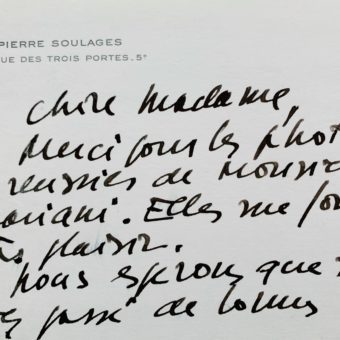 PIERRE SOULAGES
UE DES TROIS PORTES. 5e
Chère Madame,
Merci pour les phot
reussies de Monsie
ariani. Elles me fo
plaisir.
nous esperons que
passé de bonnes